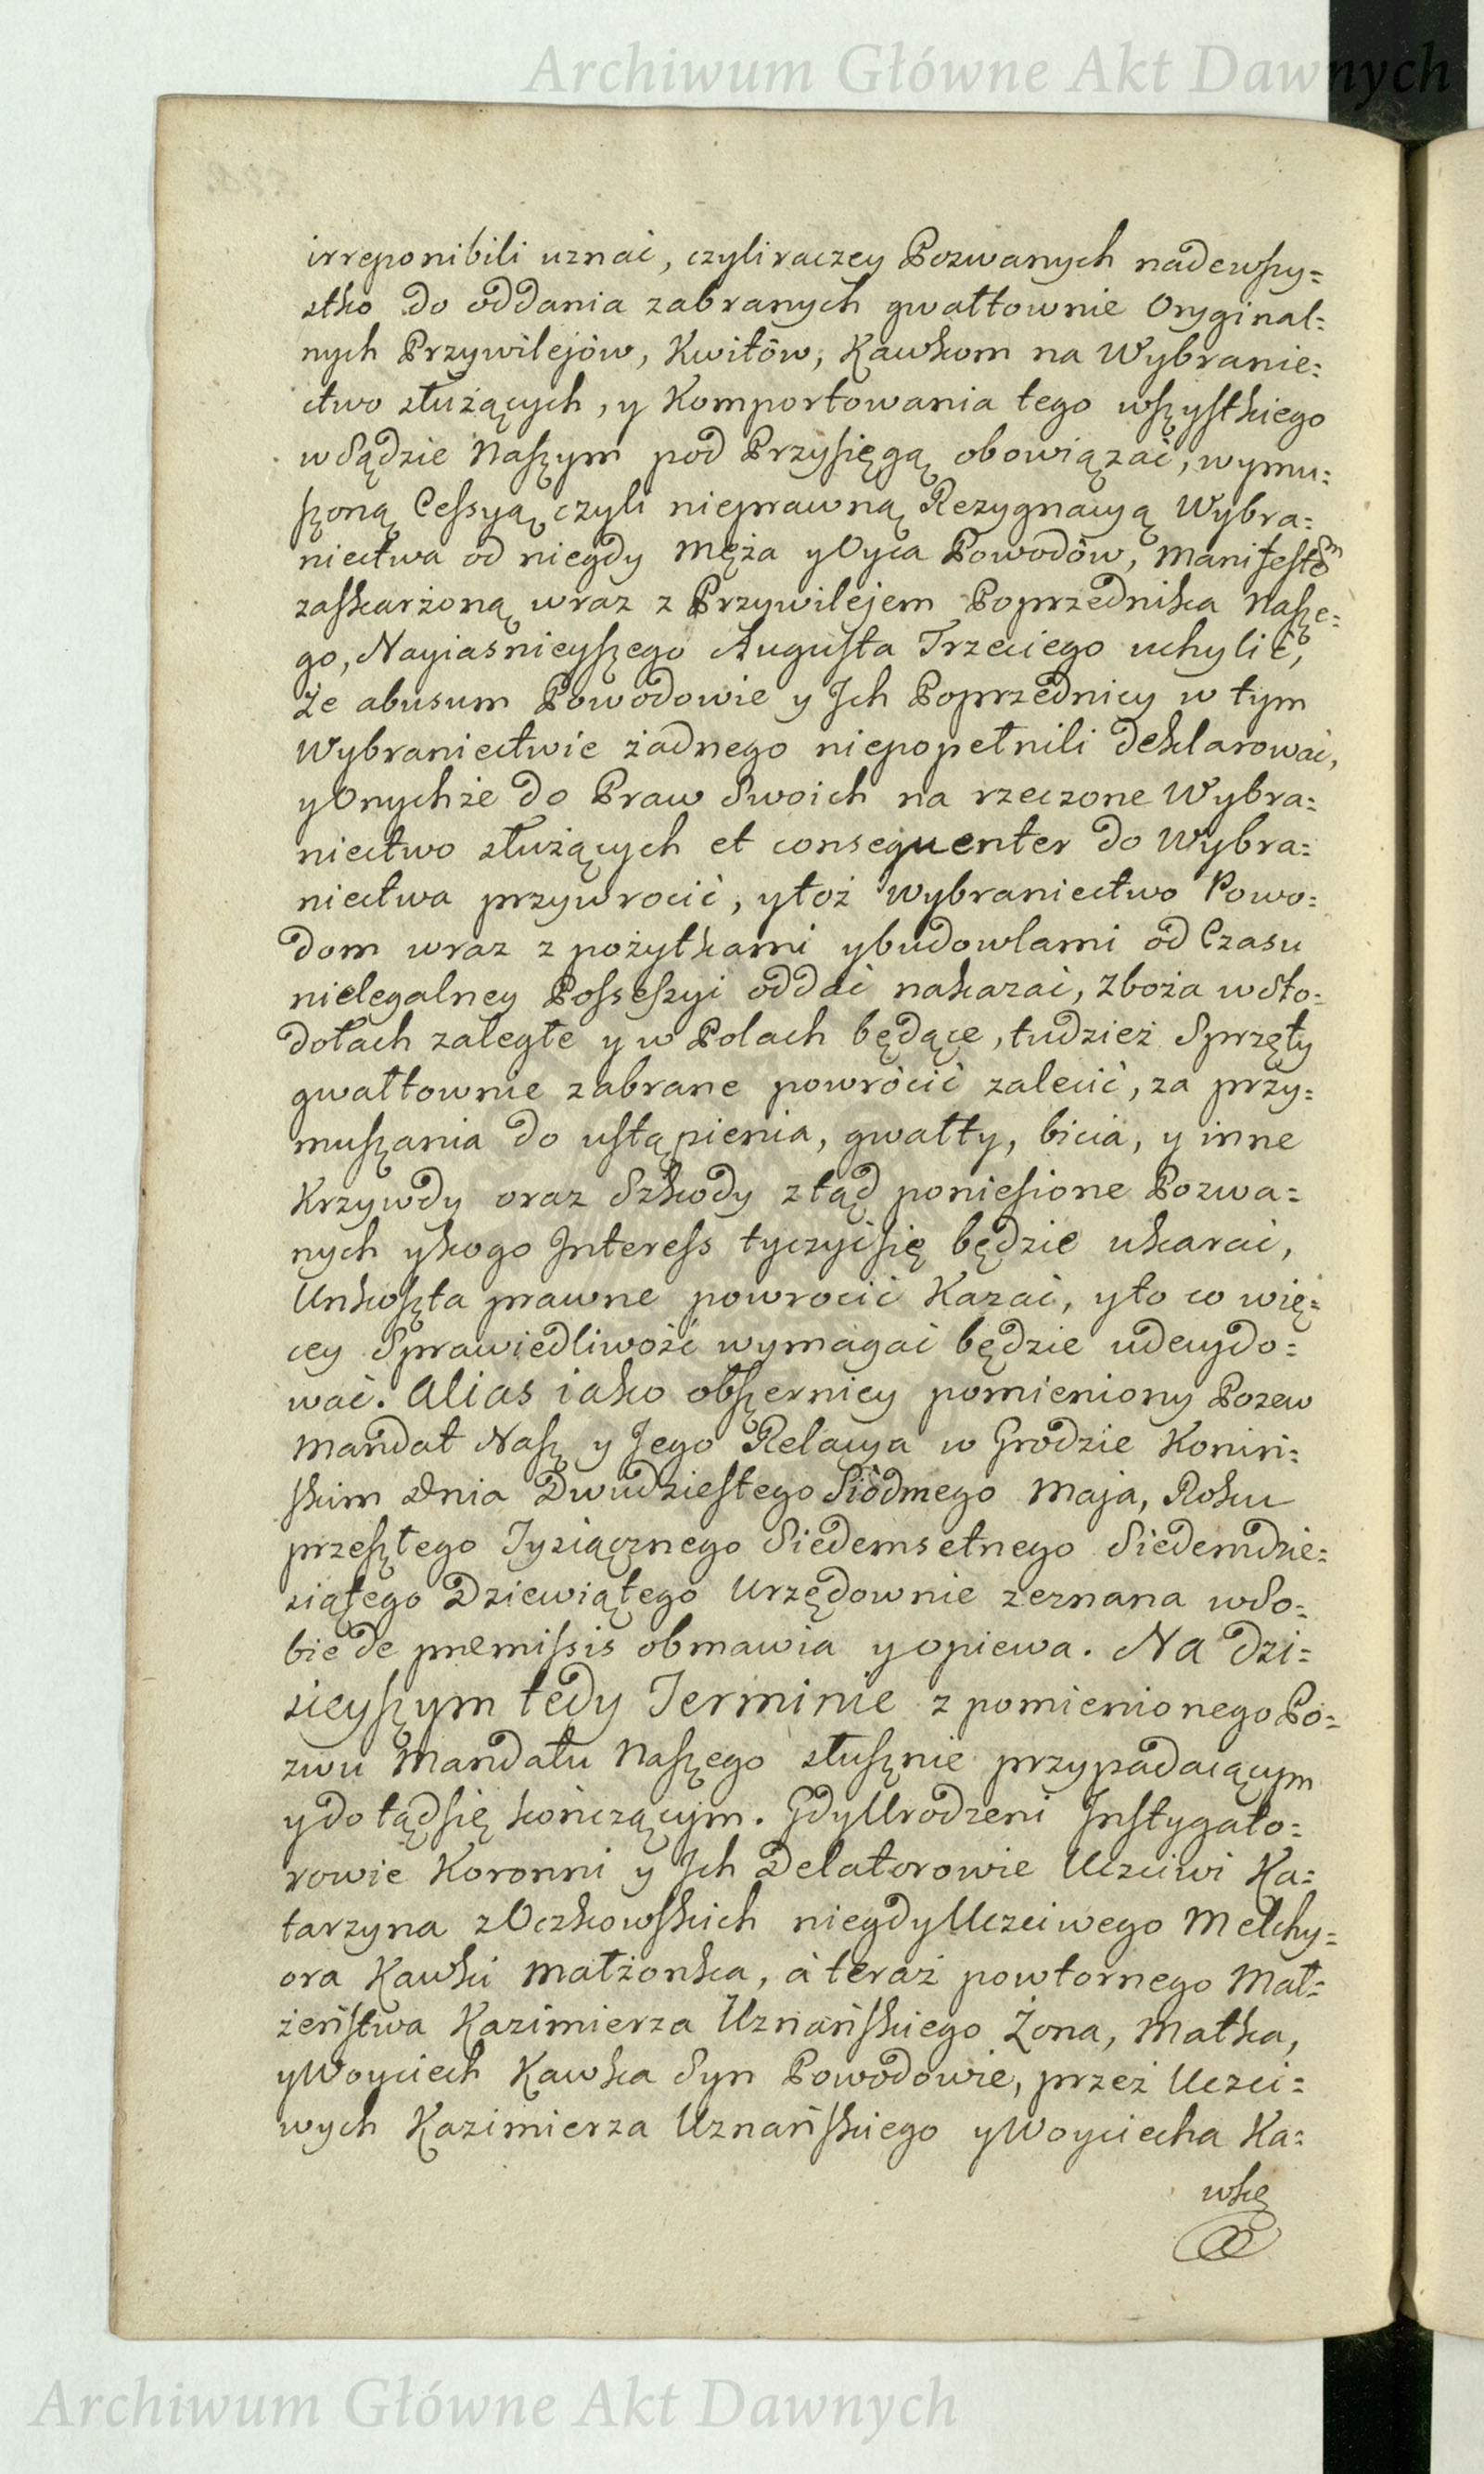 Archiwum Główne Akt Dawnych
irreponibili uznać, czyli raczey Pozwanych nadewszy=
stko do oddania zabranych gwałtownie Oryginal=
nych Przywilejów, Kwitów, Kawkom na Wybranie=
ctwo służących, y Komportowania tego wszystkiego
w Sądzie Naszym pod Przysięgą obowiązać, wymu=
szoną Cessyą czyli nieprawną Rezygnacyą Wybra=
niectwa od niegdy Męża y Oyca Powodów, Manifestem
zaskarżoną wraz z Przywilejem Poprzednika Nasze=
go, Nayiasnieyszego Augusta Trzeciego uchylić,
że abusum Powodowie y Jch Poprzednicy w tym
Wybraniectwie żadnego niepopełnili deklarować,
y Onychże do Praw Swoich na rzeczone Wybra=
niectwo służących et consequenter do Wybra=
niectwa przywrocić, y toż Wybraniectwo Powo=
dom wraz z pożytkami y budowlami od Czasu
nielegalney Possessyi oddać nakazać, Zboża w Sto=
dołach zaległe y w Polach będące, tudzież Sprzęty
gwałtownie zabrane powrócić zalecić, za przy=
muszania do ustąpienia, gwałty, bicia, y inne
Krzywdy oraz Szkody ztąd poniesione Pozwa=
nych y kogo Jnteress tyczyć się będzie ukarać,
Unkoszta prawne powrocić Kazać, y to co wię=
cey Sprawiedliwość wymagać będzie udecydo=
wać. Alias iako obszerniey pomieniony Pozew
Mandat Nasz y Jego Relacya w Grodzie Koniń=
skim Dnia Dwudziestego Siódmego Maja, Roku
przeszłego Tysiącznego Siedemsetnego Siedemdzie=
siątego Dziewiątego Urzędownie zeznana w So=
bie de premissis obmawia y opiewa. Na dzi=
sieyszym tedy Terminie z pomienionego Po=
zwu Mandatu Naszego słusznie przypadaiącym
y dotąd się kończącym. Gdy Urodzeni Jnstygato=
rowie Koronni y Jch Delatorowie Uczciwi Ka=
tarzyna z Oczkowskich niegdy Uczciwego Melchy=
ora Kawki Małżonka, à teraz powtornego Mał=
żeństwa Kazimierza Uznańskiego Żona, Matka,
y Woyciech Kawka Syn Powodowie, przez Uczci=
wych Kazimierza Uznańskiego y Woyciecha Ka=
wkę
Archiwum Główne Akt Dawnych